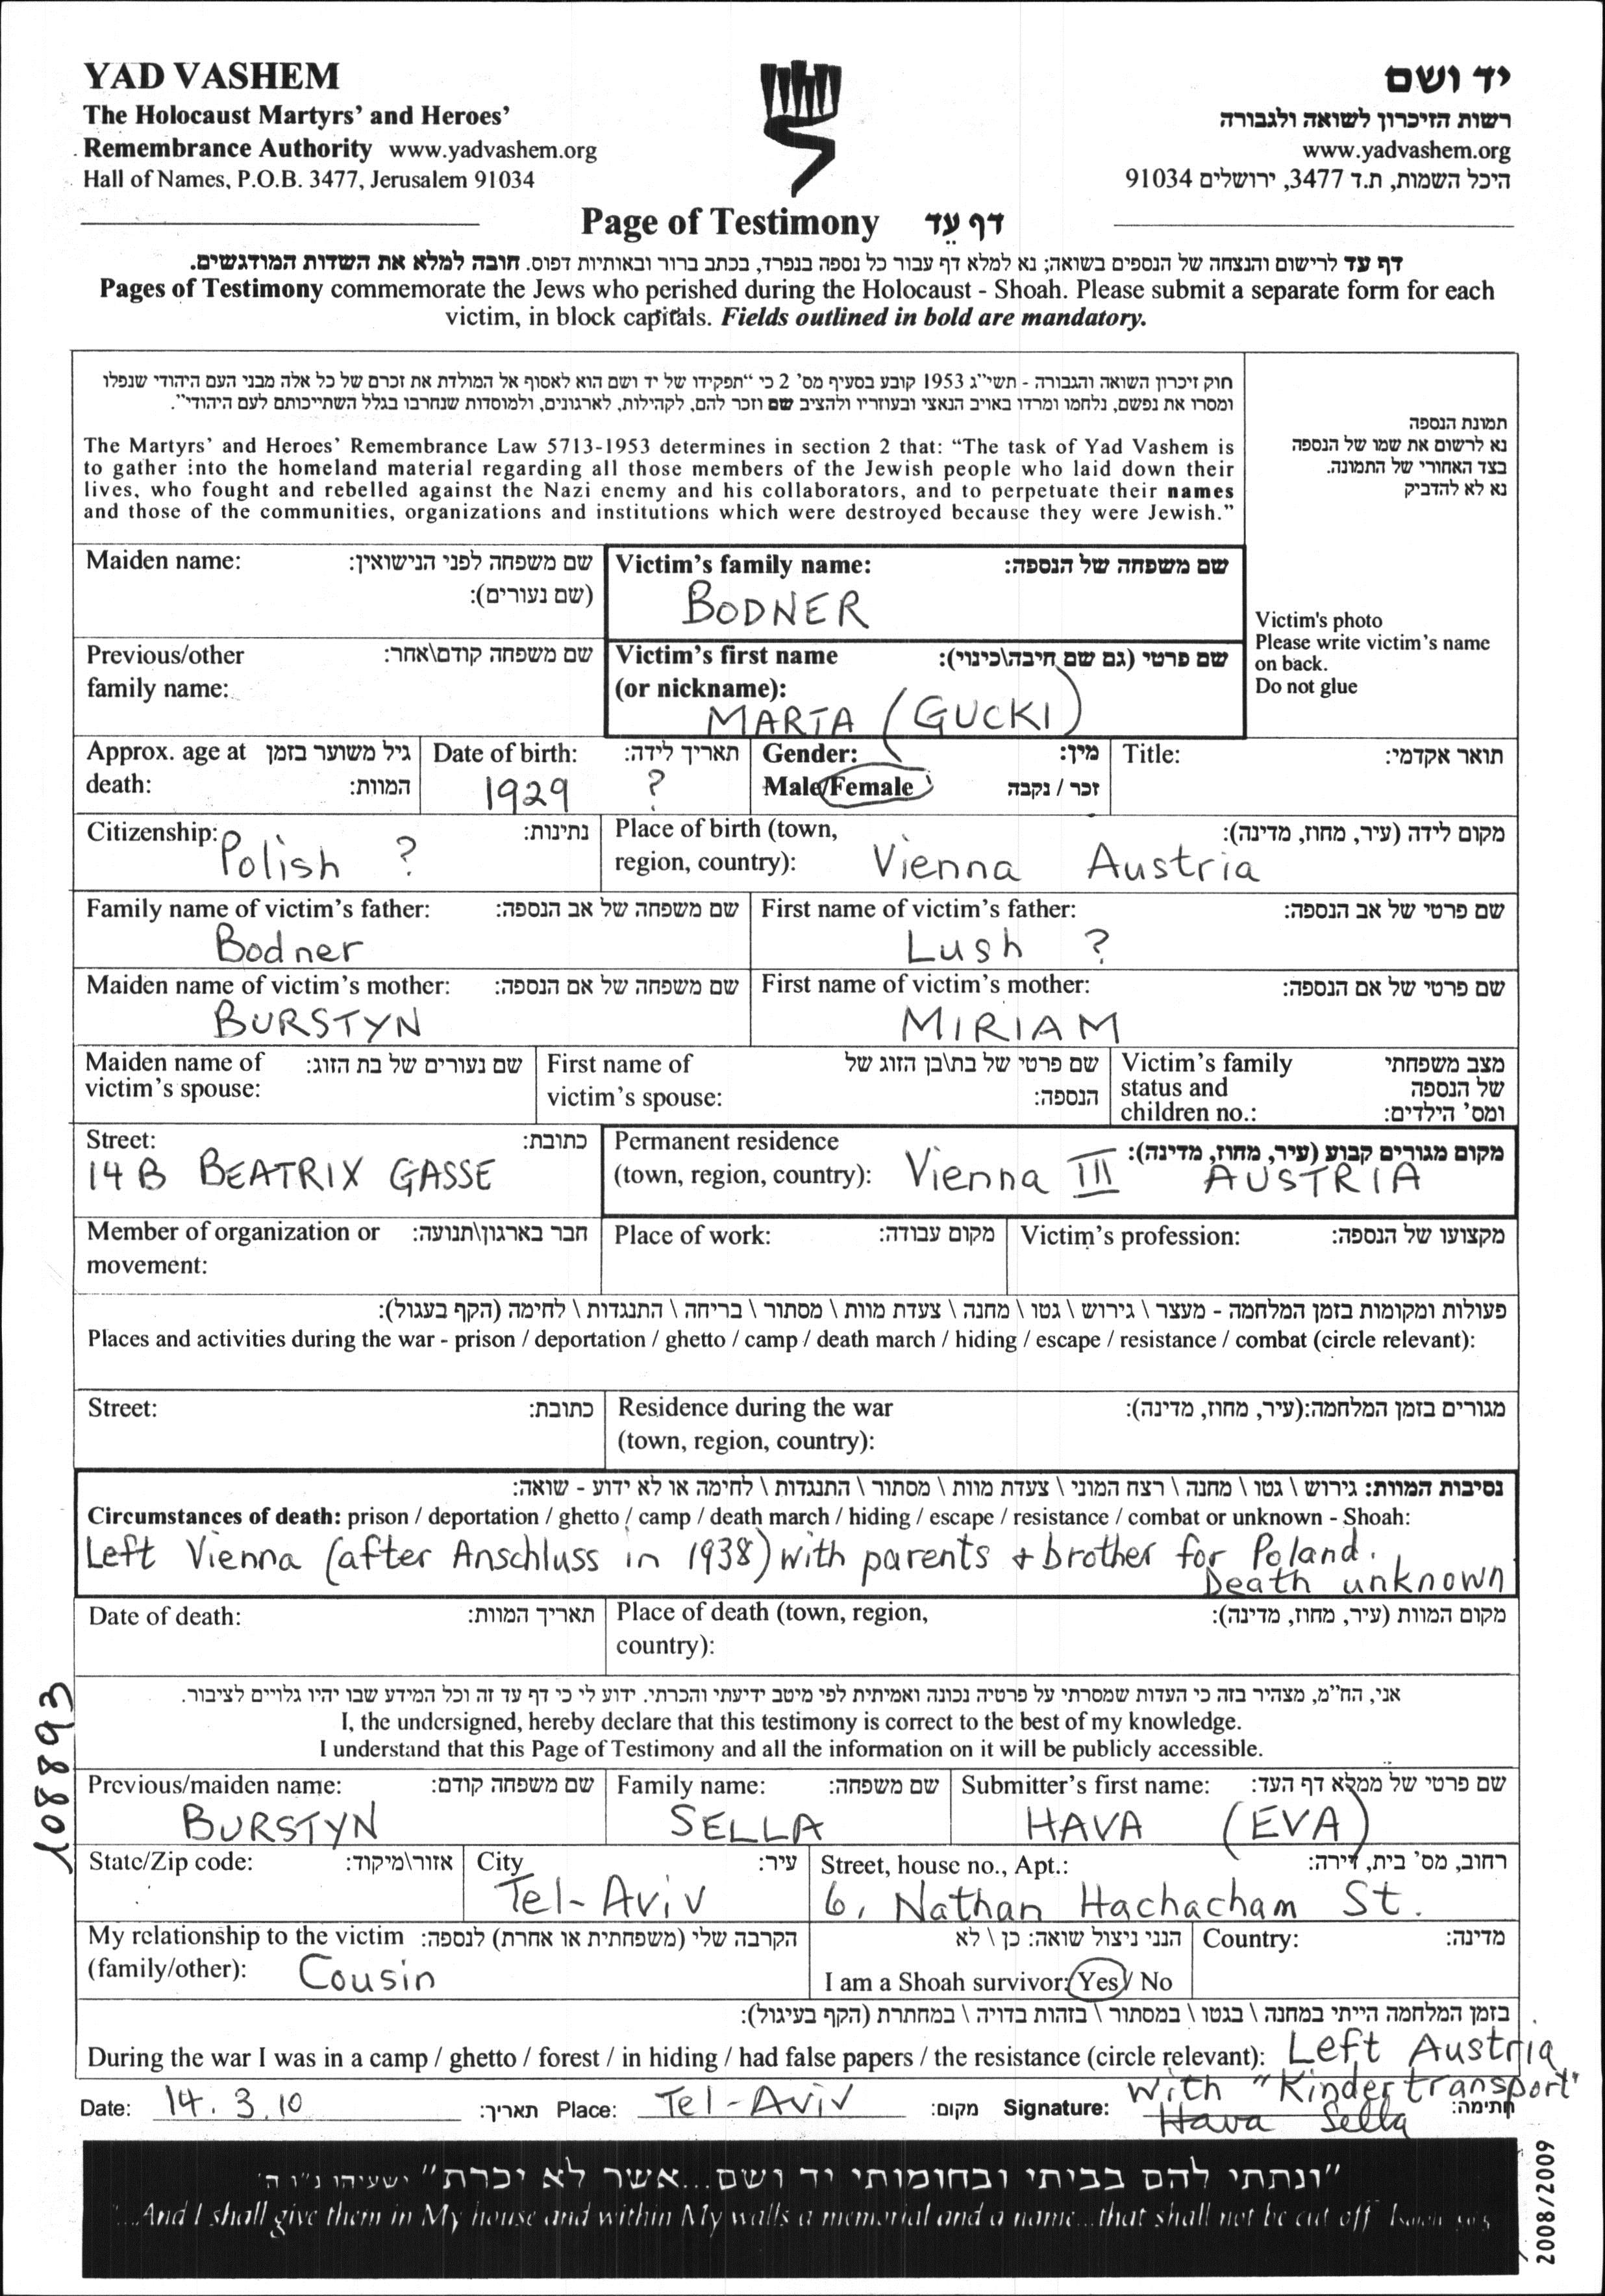 YAD VASHEM
The Holocaust Martyrs' and Heroes'
Remembrance Authority www.yadvashem.org
Hall of Names, P.O.B. 3477, Jerusalem 91034
יד ושם
רשות הזיכרון לשואה ולגבורה
www.yadvashem.org
היכל השמות, ת.ד 3477, ירושלים 91034
Page of Testimony דף עֵד
דף עד לרישום והנצחה של הנספים בשואה; נא למלא דף עבור כל נספה בנפרד, בכתב ברור ובאותיות דפוס. חובה למלא את השדות המודגשים.
Pages of Testimony commemorate the Jews who perished during the Holocaust - Shoah. Please submit a separate form for each
victim, in block capitals. Fields outlined in bold are mandatory.
חוק זיכרון השואה והגבורה - תשי"ג 1953 קובע בסעיף מס' 2 כי "תפקידו של יד ושם הוא לאסוף אל המולדת את זכרם של כל אלה מבני העם היהודי שנפלו
ומסרו את נפשם, נלחמו ומרדו באויב הנאצי ובעוזריו ולהציב שם וזכר להם, לקהילות, לארגונים, ולמוסדות שנחרבו בגלל השתייכותם לעם היהודי".
The Martyrs' and Heroes' Remembrance Law 5713-1953 determines in section 2 that: "The task of Yad Vashem is
to gather into the homeland material regarding all those members of the Jewish people who laid down their
lives, who fought and rebelled against the Nazi enemy and his collaborators, and to perpetuate their names
and those of the communities, organizations and institutions which were destroyed because they were Jewish."
תמונת הנספה
נא לרשום את שמו של הנספה
בצד האחורי של התמונה.
נא לא להדביק
Victim's photo
Please write victim's name
on back.
Do not glue
Maiden name: שם משפחה לפני הנישואין:
(שם נעורים):
Victim's family name: שם משפחה של הנספה:
BODNER
Previous/other שם משפחה קודם\אחר:
family name:
Victim's first name שם פרטי (גם שם חיבה\כינוי):
(or nickname):
MARTA (GUCKI)
Approx. age at גיל משוער בזמן
death: המוות:
Date of birth: תאריך לידה:
1929 ?
Gender: מין:
Male/Female זכר / נקבה
Title: תואר אקדמי:
Citizenship: נתינות:
Polish ?
Place of birth (town, מקום לידה (עיר, מחוז, מדינה):
region, country): Vienna Austria
Family name of victim's father: שם משפחה של אב הנספה:
Bodner
First name of victim's father: שם פרטי של אב הנספה:
Lush ?
Maiden name of victim's mother: שם משפחה של אם הנספה:
BURSTYN
First name of victim's mother: שם פרטי של אם הנספה:
MIRIAM
Maiden name of שם נעורים של בת הזוג:
victim's spouse:
First name of שם פרטי של בת\בן הזוג של
victim's spouse: הנספה:
Victim's family מצב משפחתי
status and של הנספה
children no.: ומס' הילדים:
Street: כתובת:
14 B BEATRIX GASSE
Permanent residence מקום מגורים קבוע (עיר, מחוז, מדינה):
(town, region, country): Vienna III AUSTRIA
Member of organization or חבר בארגון\תנועה:
movement:
Place of work: מקום עבודה:
Victim's profession: מקצועו של הנספה:
פעולות ומקומות בזמן המלחמה - מעצר \ גירוש \ גטו \ מחנה \ צעדת מוות \ מסתור \ בריחה \ התנגדות \ לחימה (הקף בעגול):
Places and activities during the war - prison / deportation / ghetto / camp / death march / hiding / escape / resistance / combat (circle relevant):
Street: כתובת:
Residence during the war מגורים בזמן המלחמה:(עיר, מחוז, מדינה):
(town, region, country):
נסיבות המוות: גירוש \ גטו \ מחנה \ רצח המוני \ צעדת מוות \ מסתור \ התנגדות \ לחימה או לא ידוע - שואה:
Circumstances of death: prison / deportation / ghetto / camp / death march / hiding / escape / resistance / combat or unknown - Shoah:
Left Vienna (after Anschluss in 1938) with parents + brother for Poland.
Death unknown
Date of death: תאריך המוות:
Place of death (town, region, מקום המוות (עיר, מחוז, מדינה):
country):
אני, הח"מ, מצהיר בזה כי העדות שמסרתי על פרטיה נכונה ואמיתית לפי מיטב ידיעתי והכרתי. ידוע לי כי דף עד זה וכל המידע שבו יהיו גלויים לציבור.
I, the undersigned, hereby declare that this testimony is correct to the best of my knowledge.
I understand that this Page of Testimony and all the information on it will be publicly accessible.
108893
Previous/maiden name: שם משפחה קודם:
BURSTYN
Family name: שם משפחה:
SELLA
Submitter's first name: שם פרטי של ממלא דף העד:
HAVA (EVA)
State/Zip code: אזור\מיקוד:
City עיר:
Tel-Aviv
Street, house no., Apt.: רחוב, מס' בית, דירה:
6, Nathan Hachacham St.
My relationship to the victim הקרבה שלי (משפחתית או אחרת) לנספה:
(family/other): Cousin
הנני ניצול שואה: כן \ לא
I am a Shoah survivor: Yes / No
Country: מדינה:
בזמן המלחמה הייתי במחנה \ בגטו \ במסתור \ בזהות בדויה \ במחתרת (הקף בעיגול):
During the war I was in a camp / ghetto / forest / in hiding / had false papers / the resistance (circle relevant): Left Austria
with "Kindertransport"
Date: 14.3.10 תאריך: Place: Tel-Aviv מקום: Signature: Hava Sella חתימה:
"ונתתי להם בביתי ובחומותי יד ושם...אשר לא יכרת" ישעיהו נ"ו ה'
"...And I shall give them in My house and within My walls a memorial and a name...that shall not be cut off" Isaiah 56:5
2008/2009